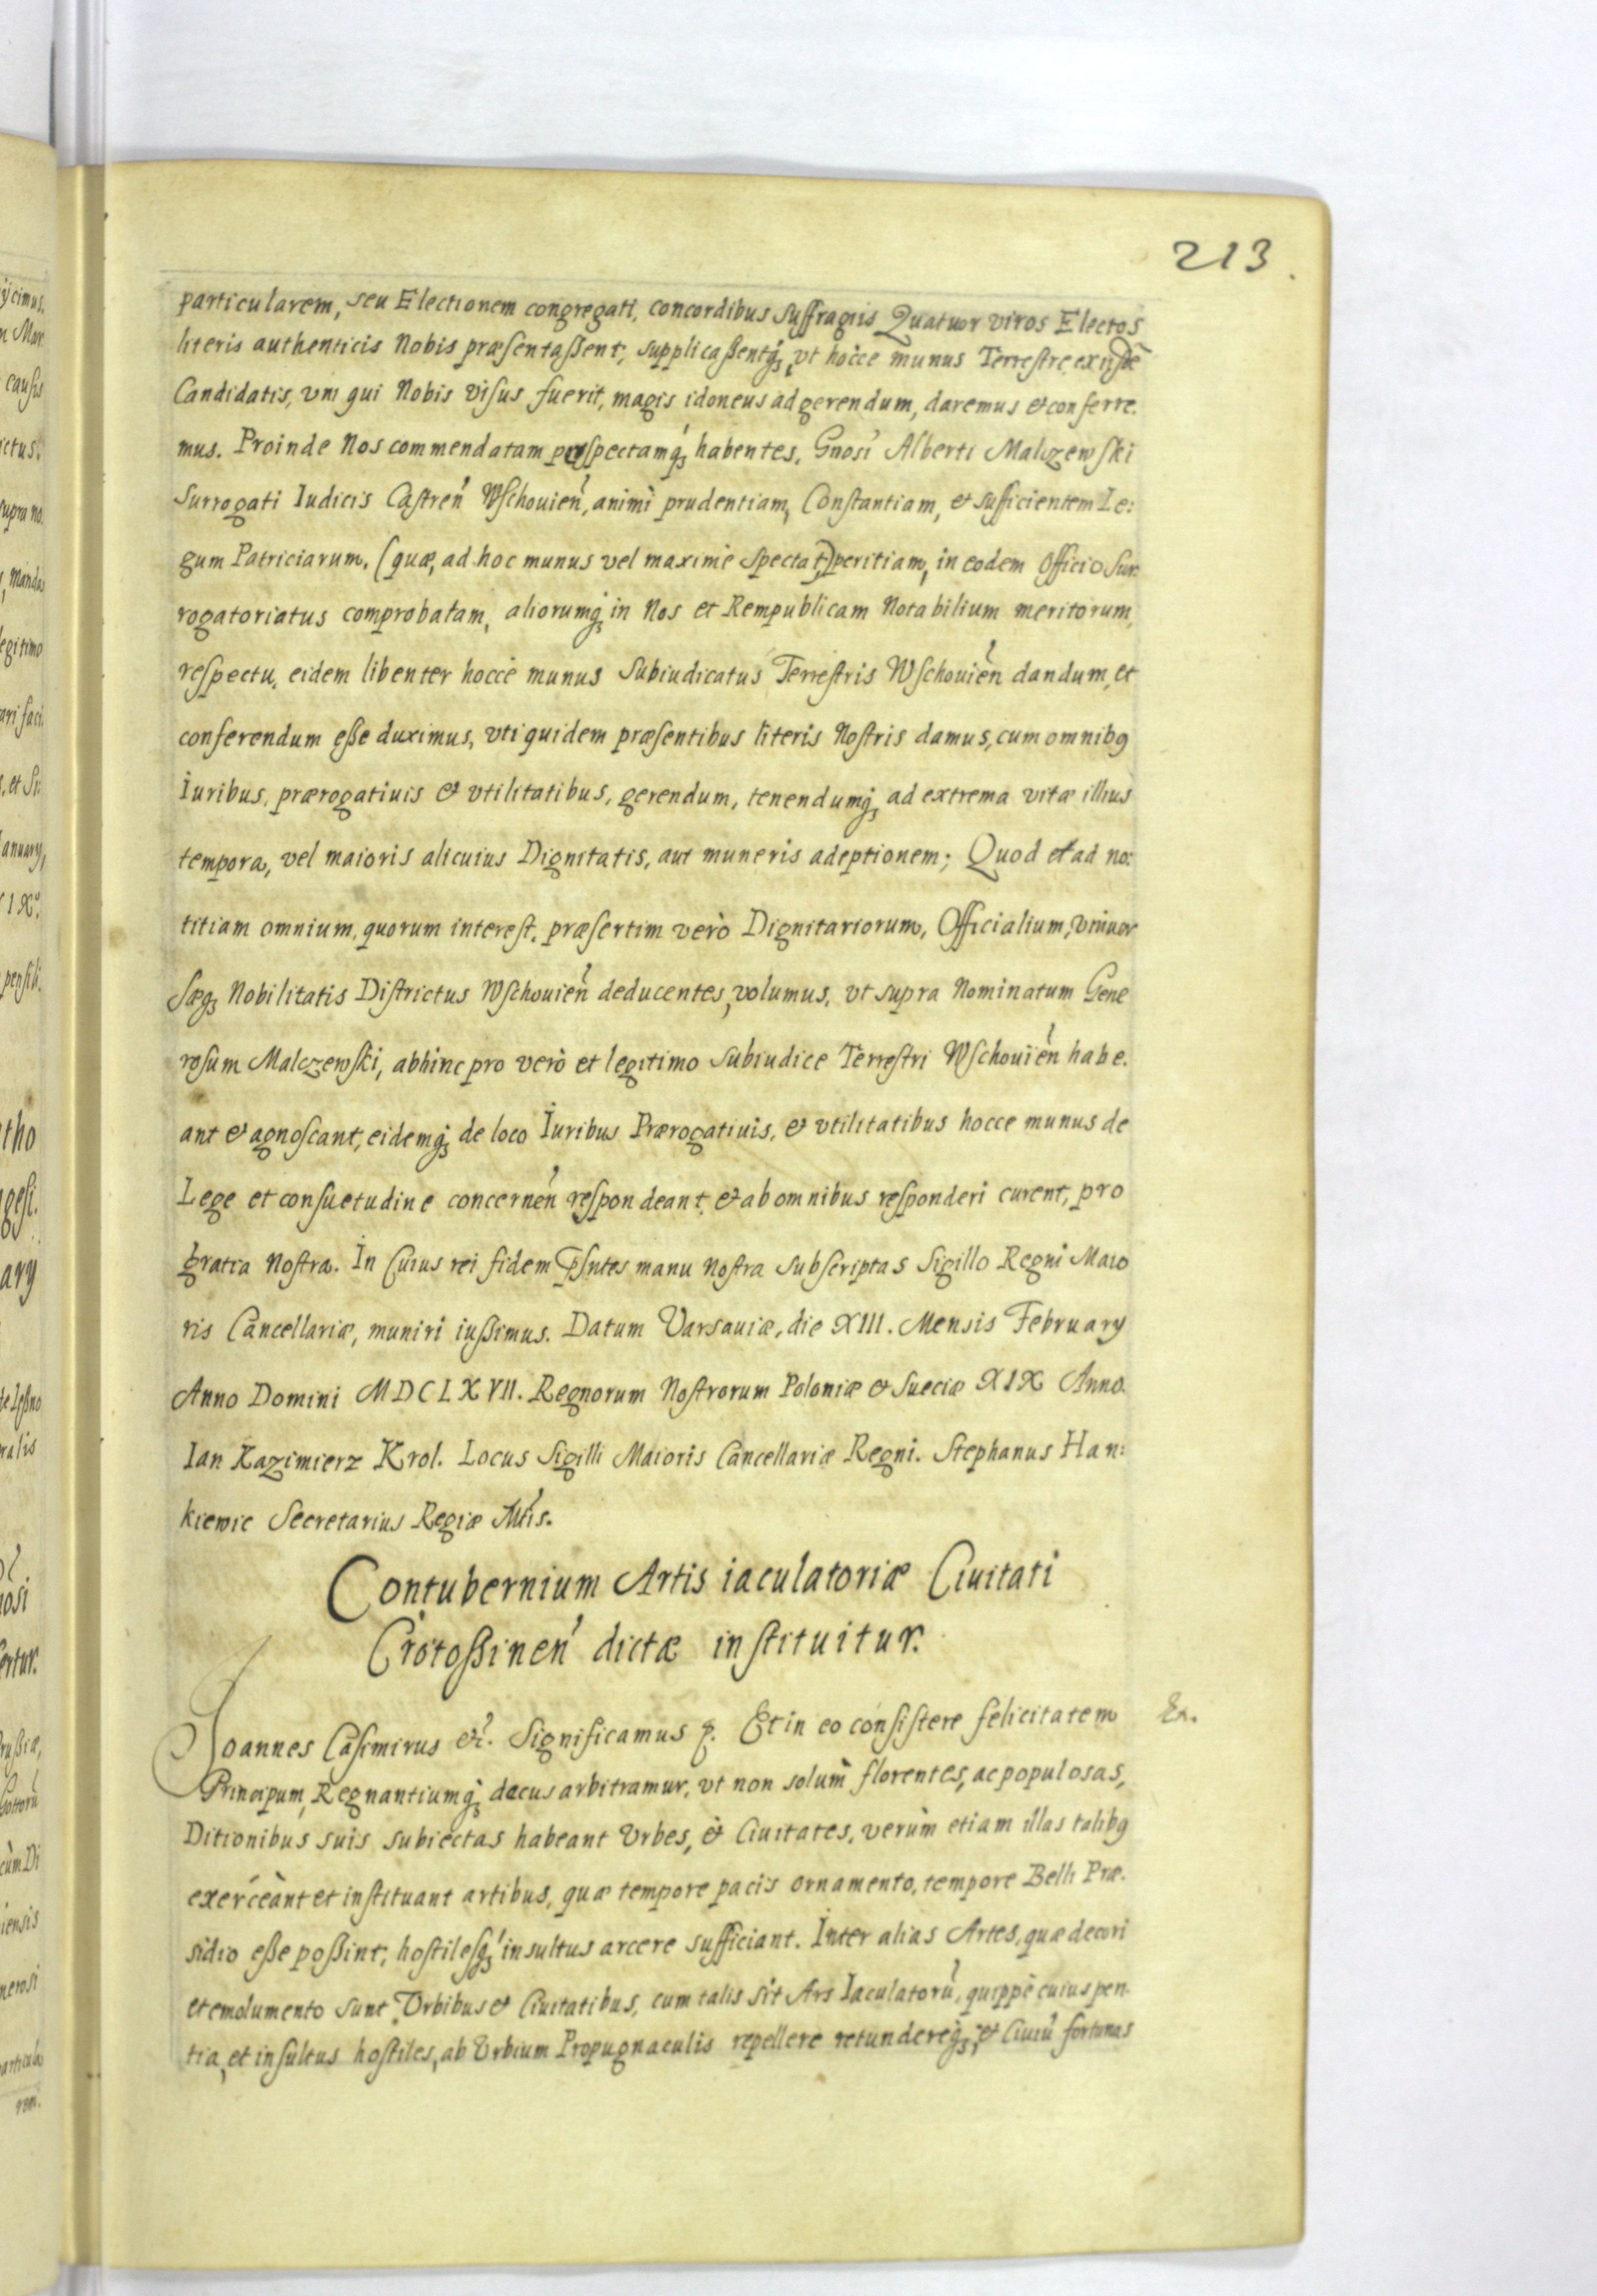 213.
particularem, seu Electionem congregati, concordibus suffragiis Quatuor viros Electos
literis authenticis Nobis præsentassent, supplicassentq́; vt hocce munus Terrestre, ex ijsdē
Candidatis, vni qui Nobis visus fuerit, magis idoneus ad gerendum, daremus et conferre.
mus. Proinde Nos commendatam perspectamq́; habentes, Gnosi Alberti Malczewski
Surrogati Iudicis Castreń Wschouień, animi prudentiam, Constantiam, et sufficientem Le:
gum Patriciarum, (quæ, ad hoc munus vel maximè spectat,) peritiam, in eodem Officio Sur:
rogatoriatus comprobatam, aliorumq́; in Nos et Rempublicam Notabilium meritorum,
respectu, eidem libenter hocce munus Subiudicatus Terrestris Wschouień dandum, et
conferendum esse duximus, vti quidem præsentibus literis Nostris damus, cum omnibq
Iuribus, prærogatiuis et vtilitatibus, gerendum, tenendumq́; ad extrema vitæ illius
tempora, vel maioris alicuius Dignitatis, aut muneris adeptionem; Quod et ad no:
titiam omnium, quorum interest, præsertim verò Dignitariorum, Officialium, vniuer
sæq; Nobilitatis Districtus Wschouień deducentes, volumus, vt supra Nominatum Gene
rosum Malczewski, abhinc pro vero et legitimo Subiudice Terrestri Wschouień habe.
ant et agnoscant, eidemq́; de loco Iuribus Prærogatiuis, et vtilitatibus hocce munus de
Lege et consuetudine concerneń respondeant, et ab omnibus responderi curent, pro
gratia Nostra. In Cuius rei fidem Psntes manu Nostra subscriptas Sigillo Regni Maio
ris Cancellariæ, muniri iussimus. Datum Varsauiæ, die XIII. Mensis February
Anno Domini MDCLXVII. Regnorum Nostrorum Poloniæ et Sueciæ XIX Anno.
Ian Kazimierz Krol. Locus Sigilli Maioris Cancellariæ Regni. Stephanus Han:
kiewic Secretarius Regiæ Mtis.
Contubernium Artis iaculatoriæ Ciuitati
Crotossineń dictæ instituitur.
Joannes Casimirus etc. Significamus p. Et in eo consistere felicitatem
Ex.
Principum, Regnantiumq́; decus arbitramur, vt non solum florentes, ac populosas,
Ditionibus suis subiectas habeant Vrbes, et Ciuitates, verùm etiam illas talibq
exerceant et instituant artibus, quæ tempore pacis ornamento, tempore Belli Præ.
sidio esse possint, hostilesq́; insultus arcere sufficiant. Inter alias Artes, quæ decori
et emolumento sunt Vrbibus et Ciuitatibus, cum talis sit Ars Iaculatoru, quippè cuius peri
tia, et insultus hostiles, ab Vrbium Propugnaculis repellere retundereq́; et Ciuiū fortunas